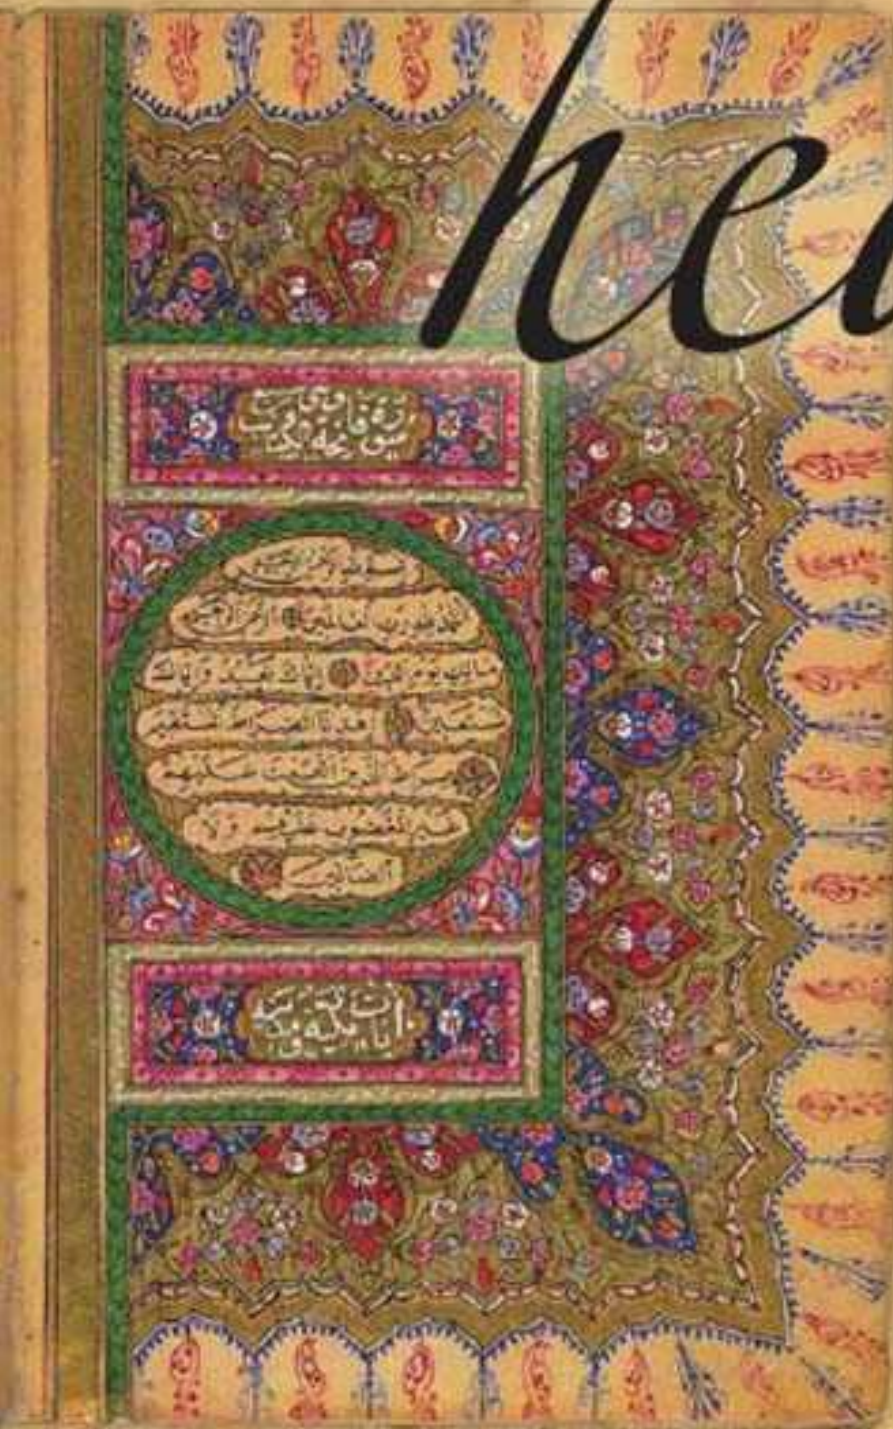 he
سورة فاتحة الكتاب وهي سبع
بسم الله الرحمن الرحيم
الحمد لله رب العالمين الرحمن الرحيم
مالك يوم الدين اياك نعبد واياك
نستعين اهدنا الصراط المستقيم
صراط الذين انعمت عليهم
غير المغضوب عليهم ولا
الضالين
آيات مكية